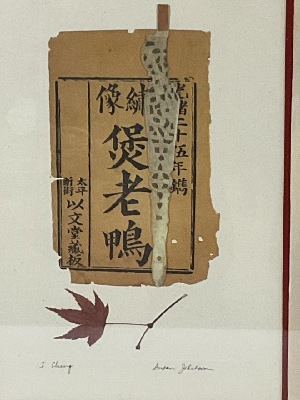 光緒二十五年鐫
繡像
煲老鴨
太平
新街
以文堂藏板
Susan